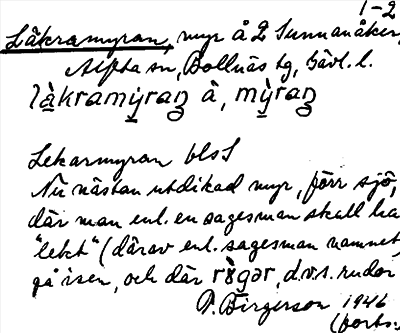 1-2
Låkramyran, myr å 2 Sunnanåker,
Alfta sn, Bollnäs tg, Gävl. l.
là̱kramỳ̱raꞑ å, mỳ̱raꞑ
Lekarmyran blss
Nu nästan utdikad myr, förr sjö,
där man enl. en sagesman skall ha
"lekt" (därav enl. sagesman namnet)
på isen, och där rògər, d.v.s. rudor
P. Birgerson 1946
(forts.